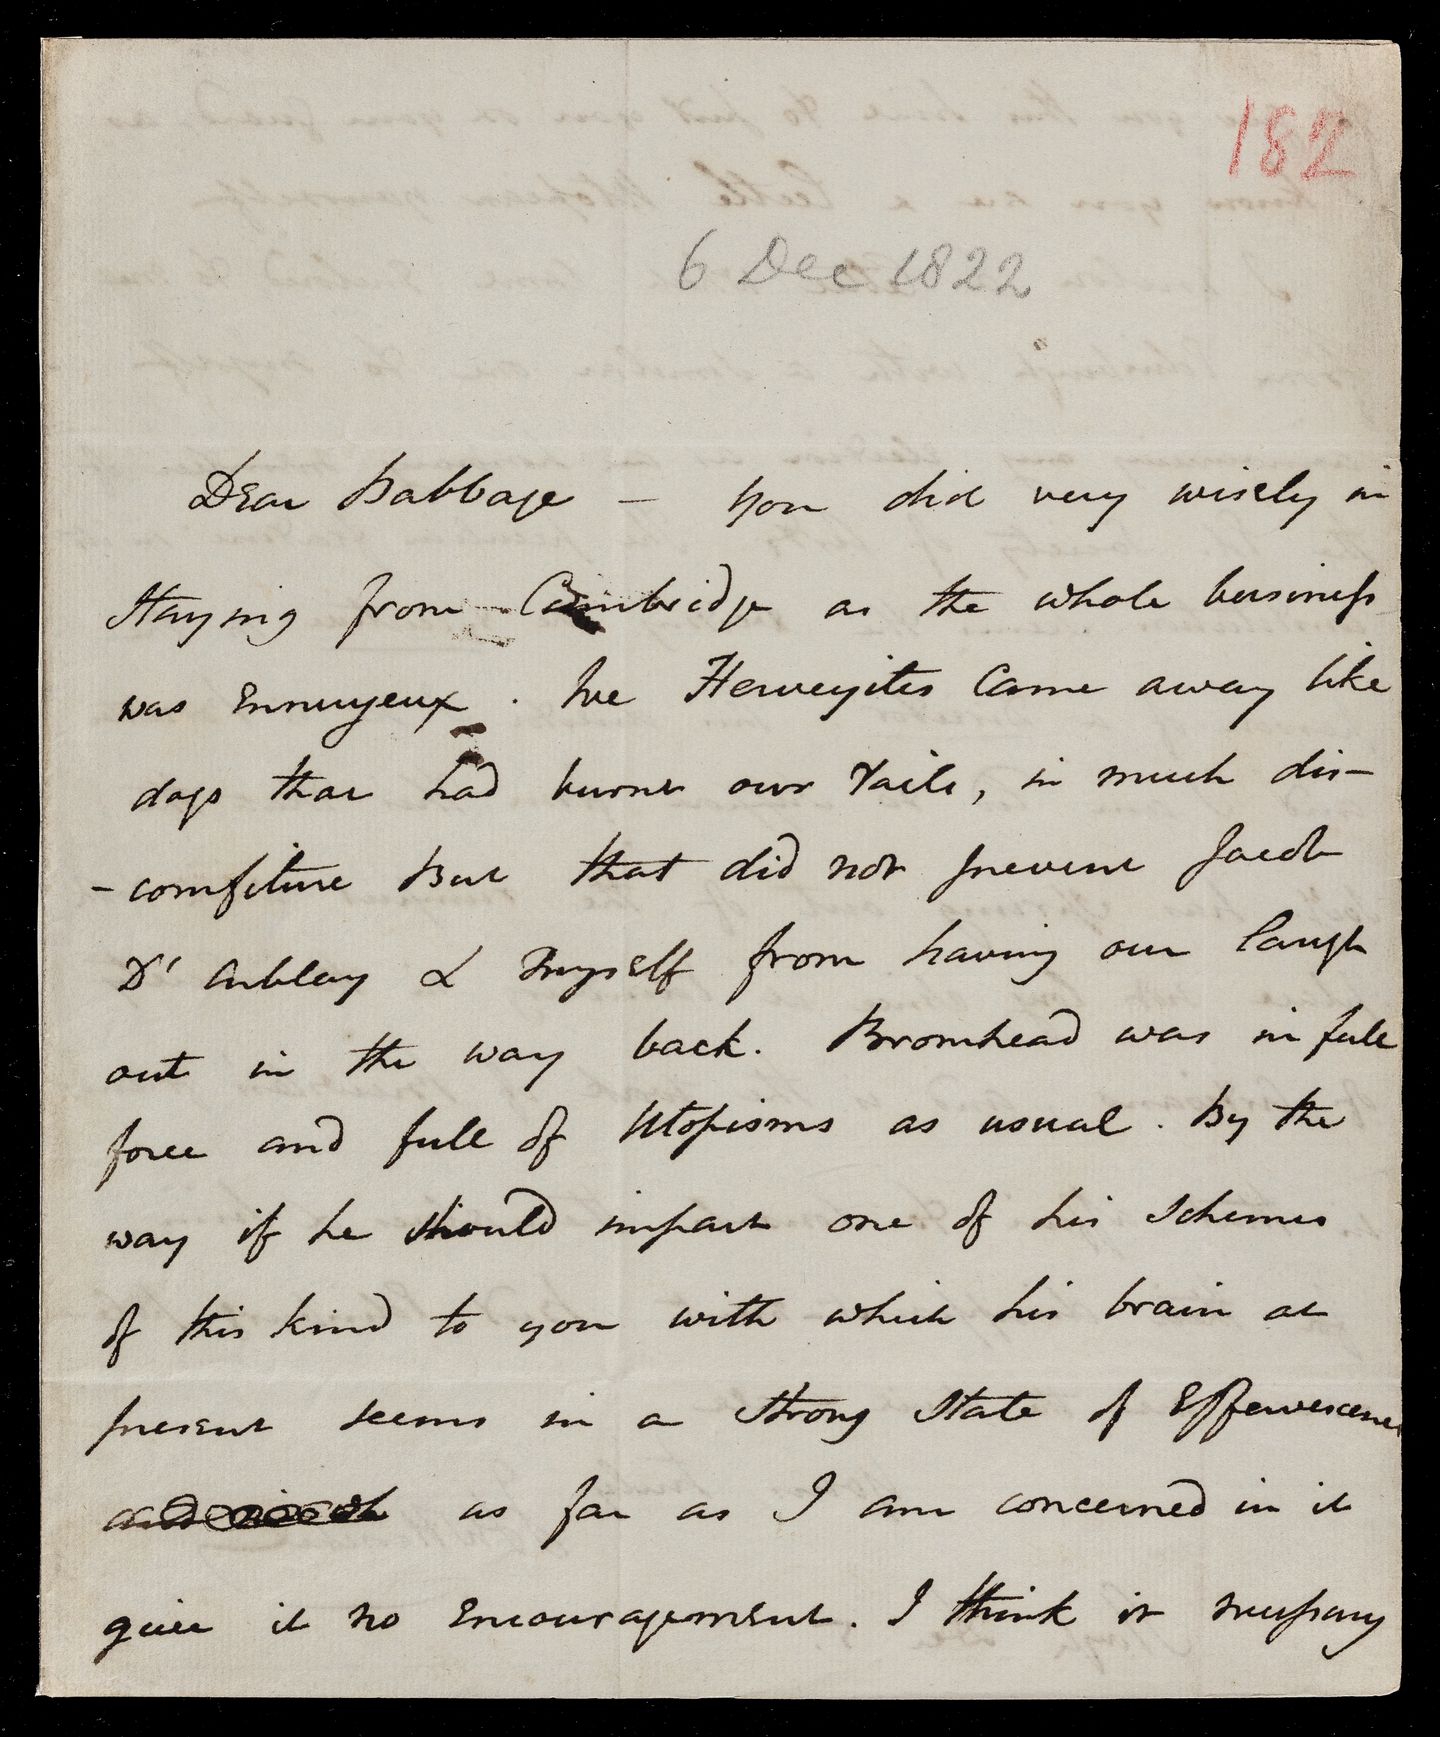 182
6 Dec 1822
Dear Babbage — You did very wisely in
staying from Cambridge as the whole business
was Ennuyeux. We Herveyites came away like
dogs that had burnt our tails, in much dis-
-comfiture But that did not prevent Jacob
D'Arblay & myself from having our laugh
out in the way back. Bromhead was in full
force and full of Utopisms as usual. By the
way if he should impart one of his schemes
of this kind to you with which his brain at
present seems in a strong state of Effervescence
as far as I am concerned in it
give it no Encouragement. I think it necessary